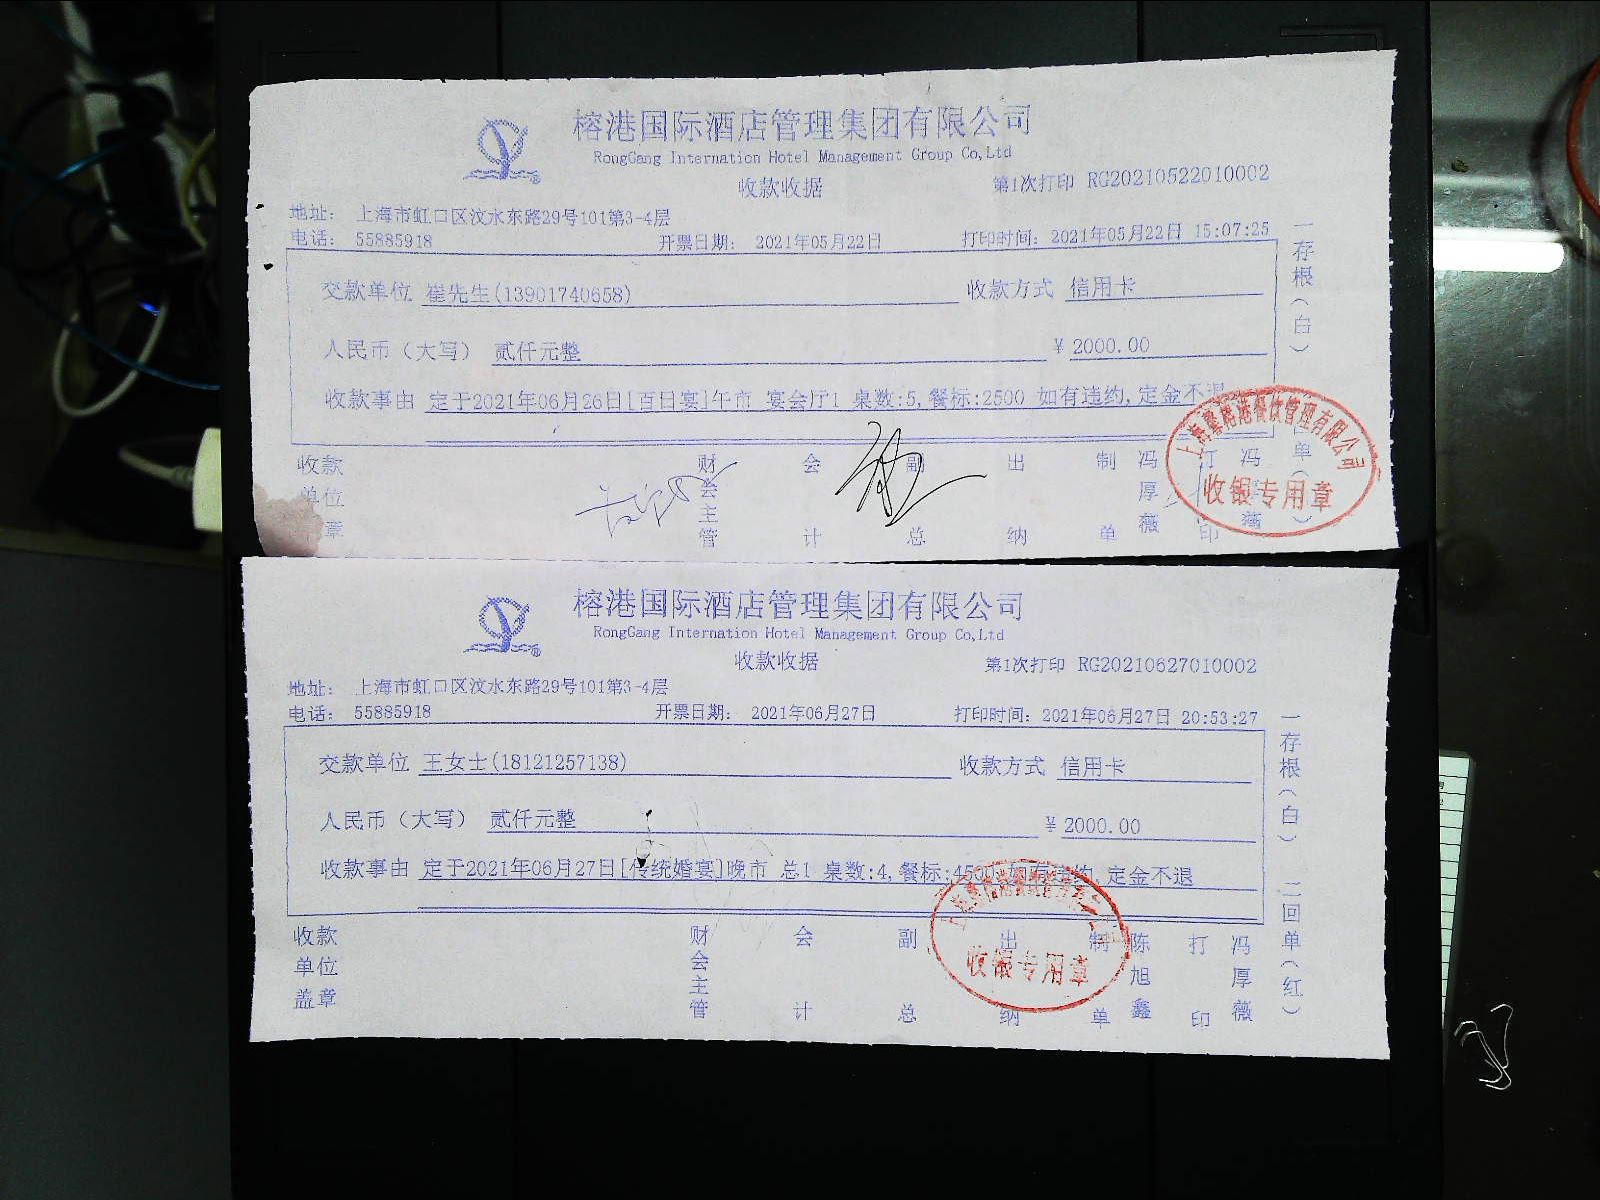 榕港国际酒店管理集团有限公司
RongGang Internation Hotel Management Group Co,Ltd
收款收据
第1次打印 RG20210522010002
地址： 上海市虹口区汶水东路29号101第3-4层
电话： 55885918 开票日期： 2021年05月22日 打印时间：2021年05月22日 15:07:25
交款单位 崔先生(13901740658) 收款方式 信用卡
人民币（大写） 贰仟元整 ¥ 2000.00
收款事由 定于2021年06月26日[百日宴]午市 宴会厅1 桌数:5,餐标:2500 如有违约,定金不退
收款单位盖章 财会主管 会计 副总 出纳 制单 冯厚薇 打印 冯厚薇
一存根（白）
收银专用章
榕港国际酒店管理集团有限公司
RongGang Internation Hotel Management Group Co,Ltd
收款收据
第1次打印 RG20210627010002
地址： 上海市虹口区汶水东路29号101第3-4层
电话： 55885918 开票日期： 2021年06月27日 打印时间：2021年06月27日 20:53:27
交款单位 王女士(18121257138) 收款方式 信用卡
人民币（大写） 贰仟元整 ¥ 2000.00
收款事由 定于2021年06月27日[传统婚宴]晚市 总1 桌数:4,餐标:4500 如有违约,定金不退
收款单位盖章 财会主管 会计 副总 出纳 制单 陈旭鑫 打印 冯厚薇
一存根（白） 二回单（红）
收银专用章